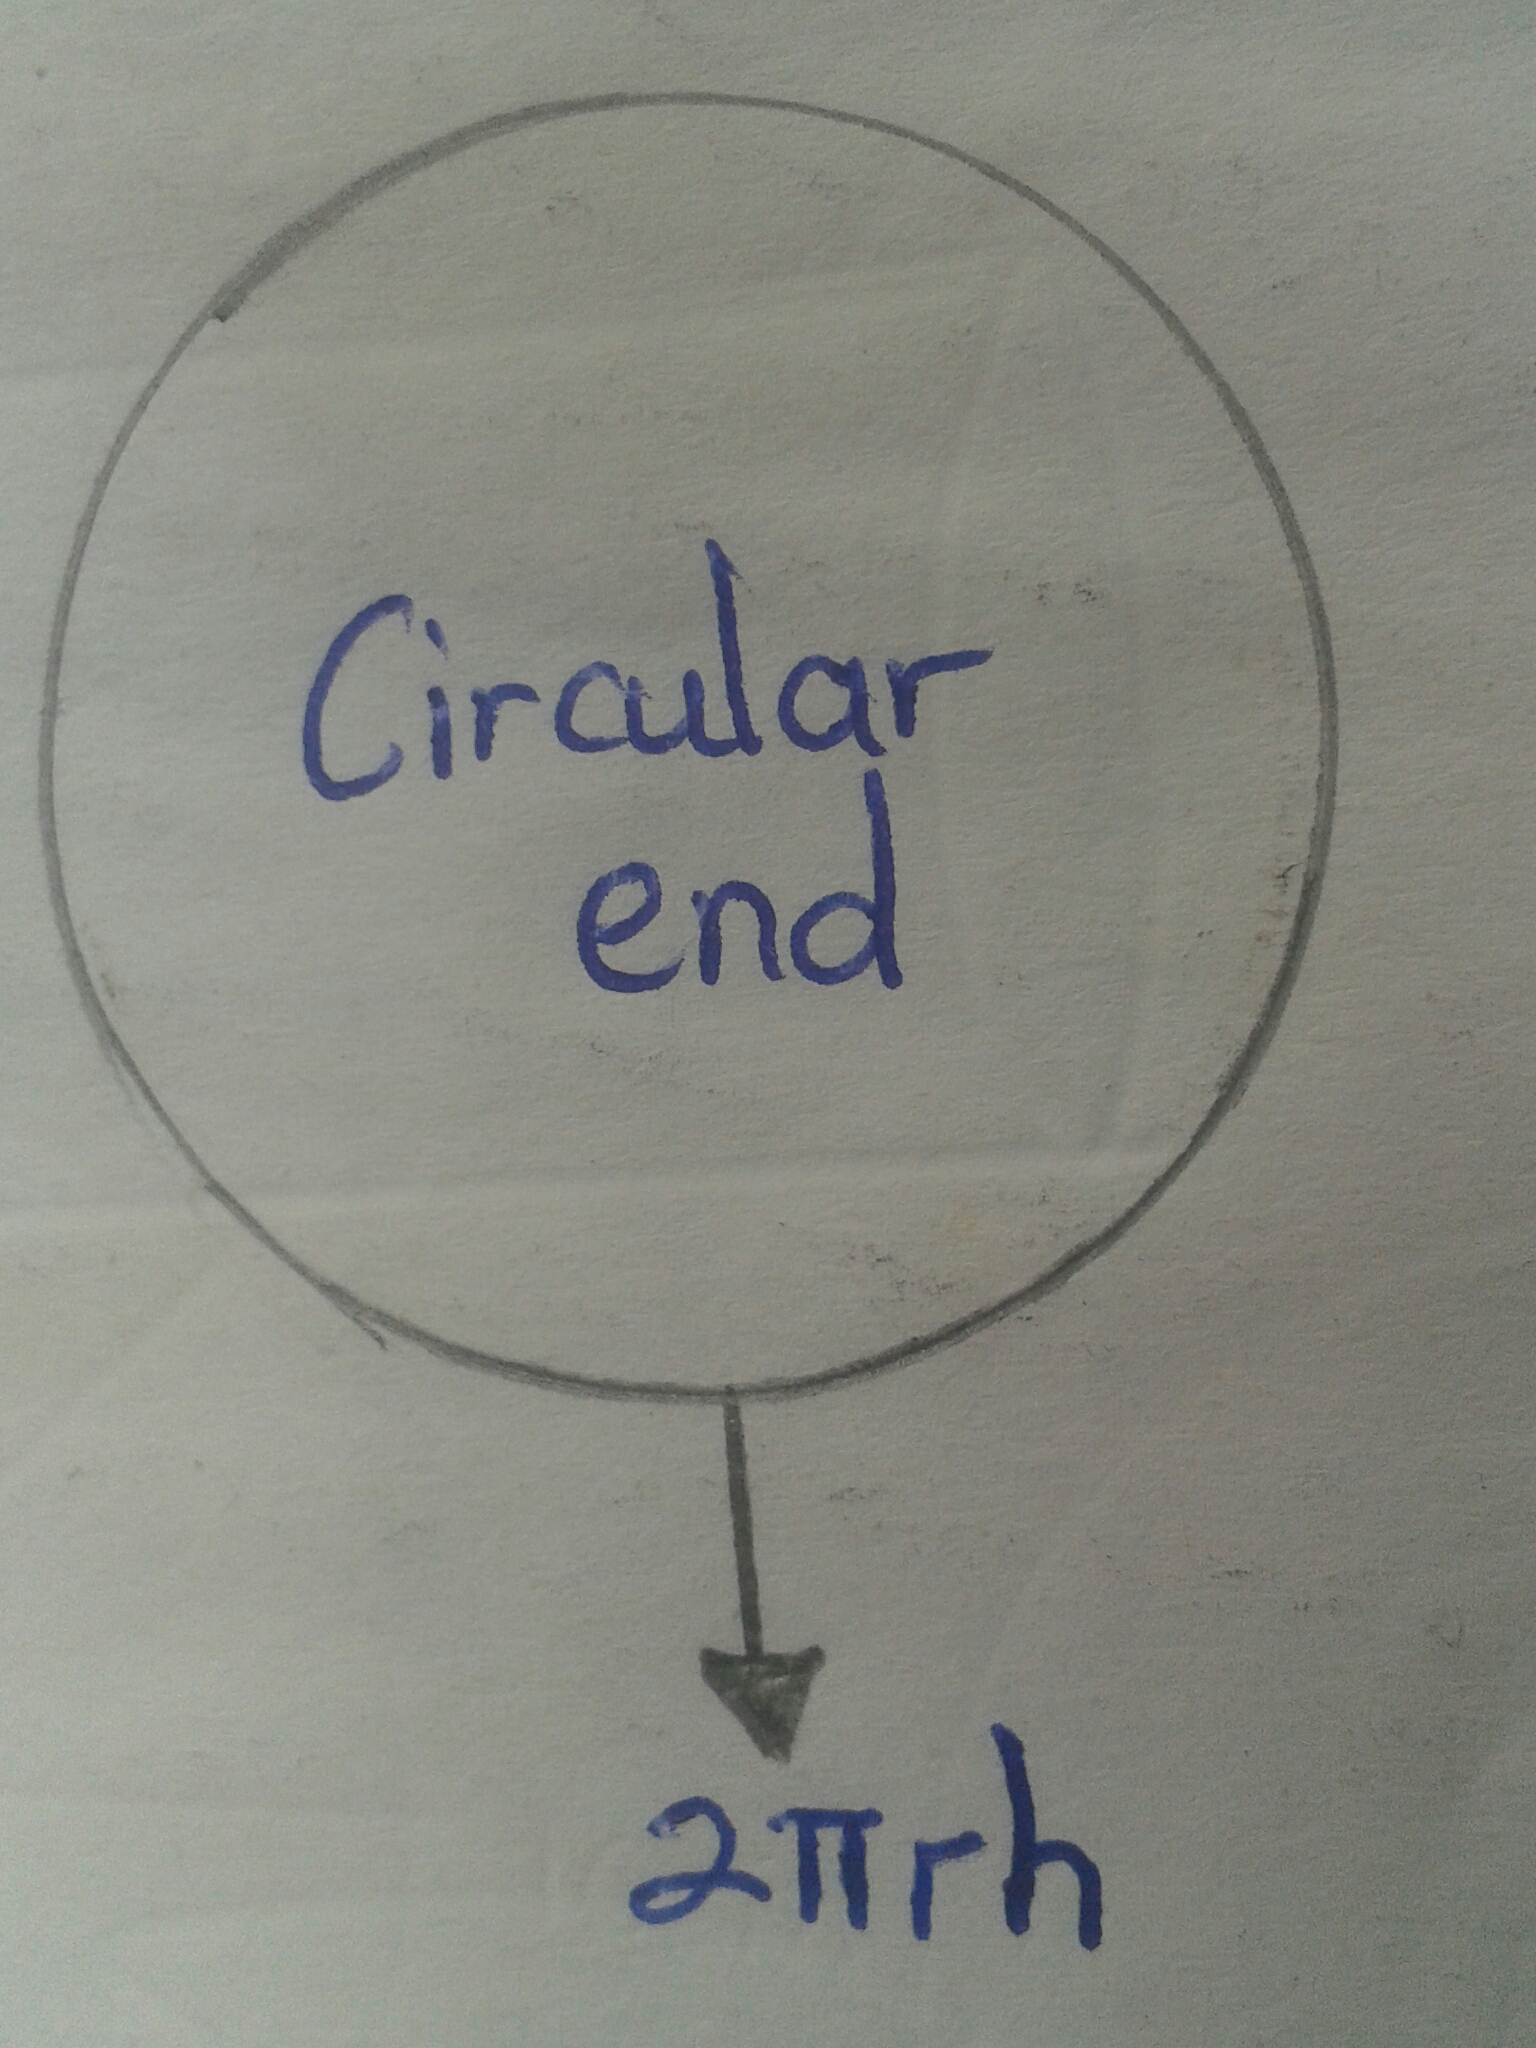 Circular
end
2πrh